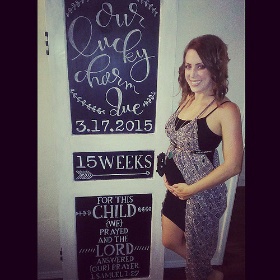 our
lucky
charm
Due
3.17.2015
15 WEEKS
FOR THIS
CHILD
{WE}
PRAYED
AND THE
LORD
ANSWERED
{OUR} PRAYER
1 SAMUEL 1:27